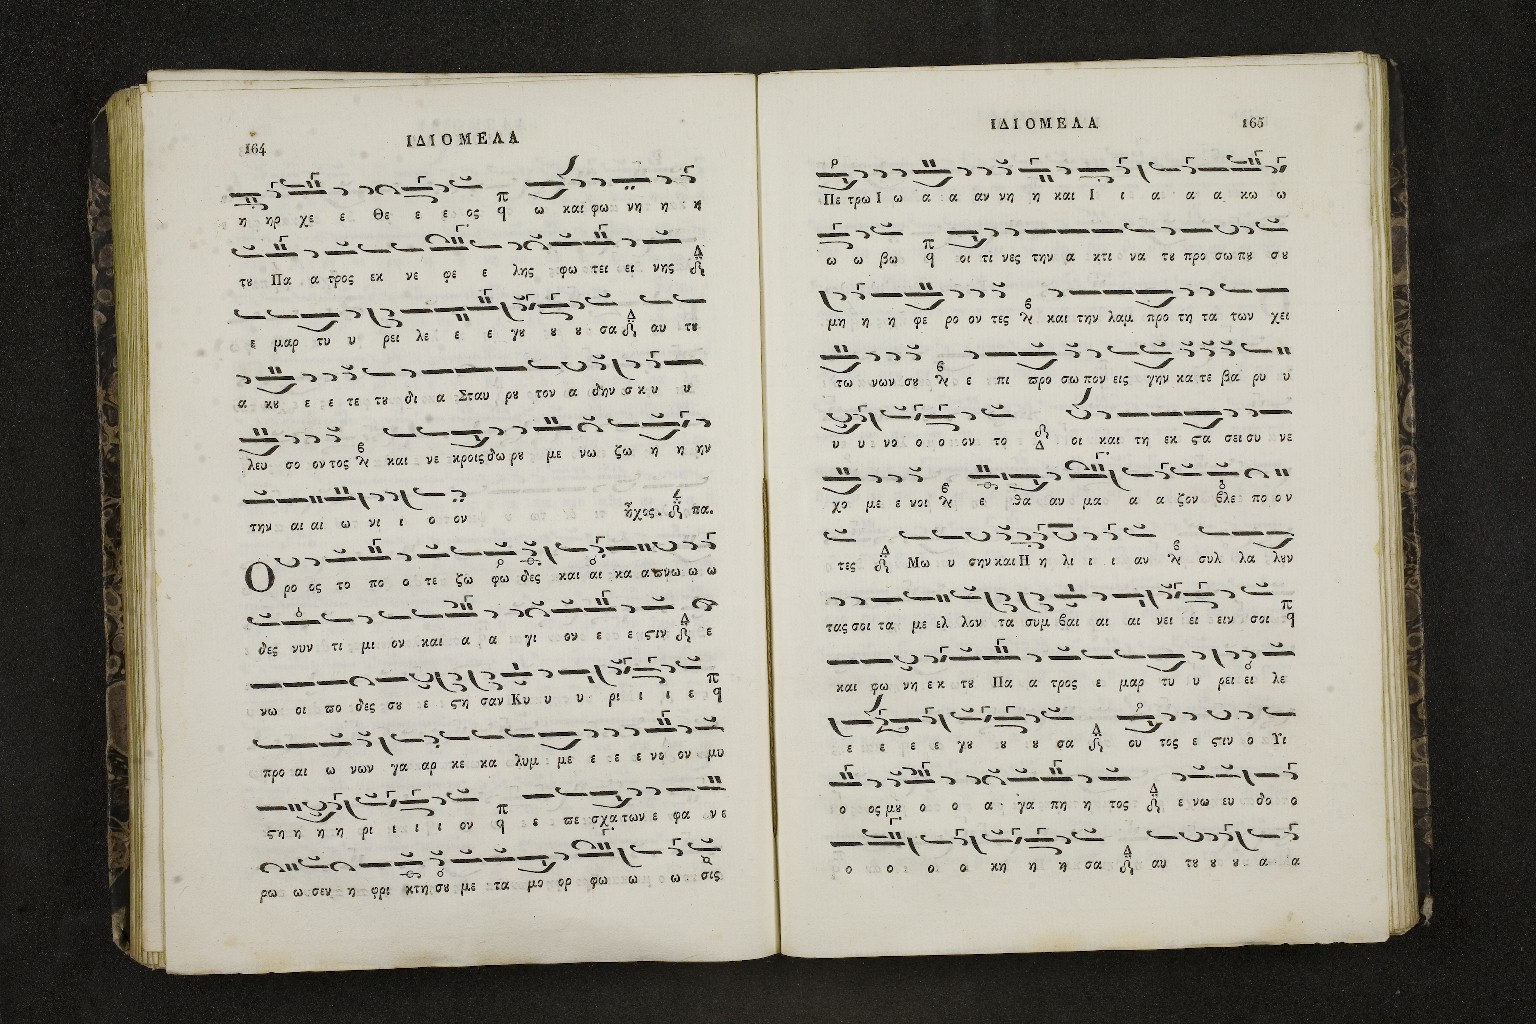 164
ΙΔΙΟΜΕΛΑ
η ηρ χε ε Θε ε ε ος ω και φω νη η η
τȣ Πα α τρος εκ νε φε ε λης φω τει ει νης
ε μαρ τυ υ ρει λε ε ε γȣ ȣ ȣ σα αυ τȣ
α κȣ ε ε τε τȣ δι α Σταυ ρȣ τον α δην σ κ υ υ
λευ σο ον τος και νε κροις δω ρȣ με νω ζω η η ην
την αι αι ω νι ι ο ον ἦχος. πα.
Ο ρο ος το πο ο τε ζο φω δες και αι κα α πνω ω ω
δες νυν τι μι ον και α α γι ον ε ε ϛιν ε
νω οι πο δες σȣ ε ϛη σαν Κυ υ υ ρι ι ι ε
προ αι ω νων γα αρ κε κα λυμ με ε ε ε νο ον μυ
ϛη η η η ρι ι ι ι ον ε πε σχα των ε φα νε
ρω ω σεν η φρι κτη σȣ με τα μο ορ φω ω ω σις
ΙΔΙΟΜΕΛΑ
165
Πε τρω Ι ω α α αν νη η και Ι ι α α α κω ω
ω ω βω οι τι νες την α κτι να τȣ προ σω πȣ σȣ
μη η η φε ρο ον τες και την λαμ προ τη τα των χει
τω νων σȣ ε πι προ σω πον εις γην κα τε βα ρυ υ
υ υ νο ο ο ον το οι και τη εκ ϛα σει συ νε
χο με ε νοι ε θα αυ μα α α ζον βλε πο ο ν
τες Μω υ σην και Η η λι ι ι αν συλ λα λȣν
τας σοι τα με ελ λον τα συμ βαι αι αι νει ει ειν σοι
και φω νη ε κ τȣ Πα α τρος ε μαρ τυ υ ρει ει λε
ε ε ε ε γȣ ȣ ȣ σα ου τος ε ϛιν ο Υι
ο ος μȣ ο ο α γα πη η τος ε νω ευ δο ο
ο ο ο ο κη η η σα αυ τȣ ȣ ȣ α α